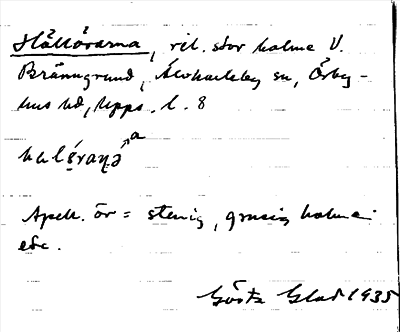 Hållörarna, rel. stor holme V.
Bränngrund, Älvkarleby sn, Örby-
hus hd, Upps. l. 8
a
Apell. ör = stenig, grusig holme
etc.
Gösta Glad 1935